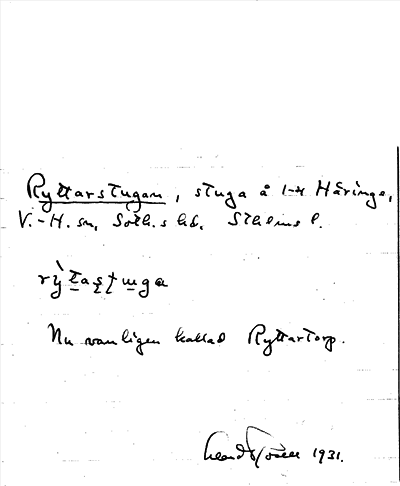 Ryttarstugan, stuga å 1-4 Häringe,
V.-H. sn, Soth.s hd. Sthlms l.
rỳt̲aşt̲ɯga
Nu vanligen kallad Ryttartorp.
1931.